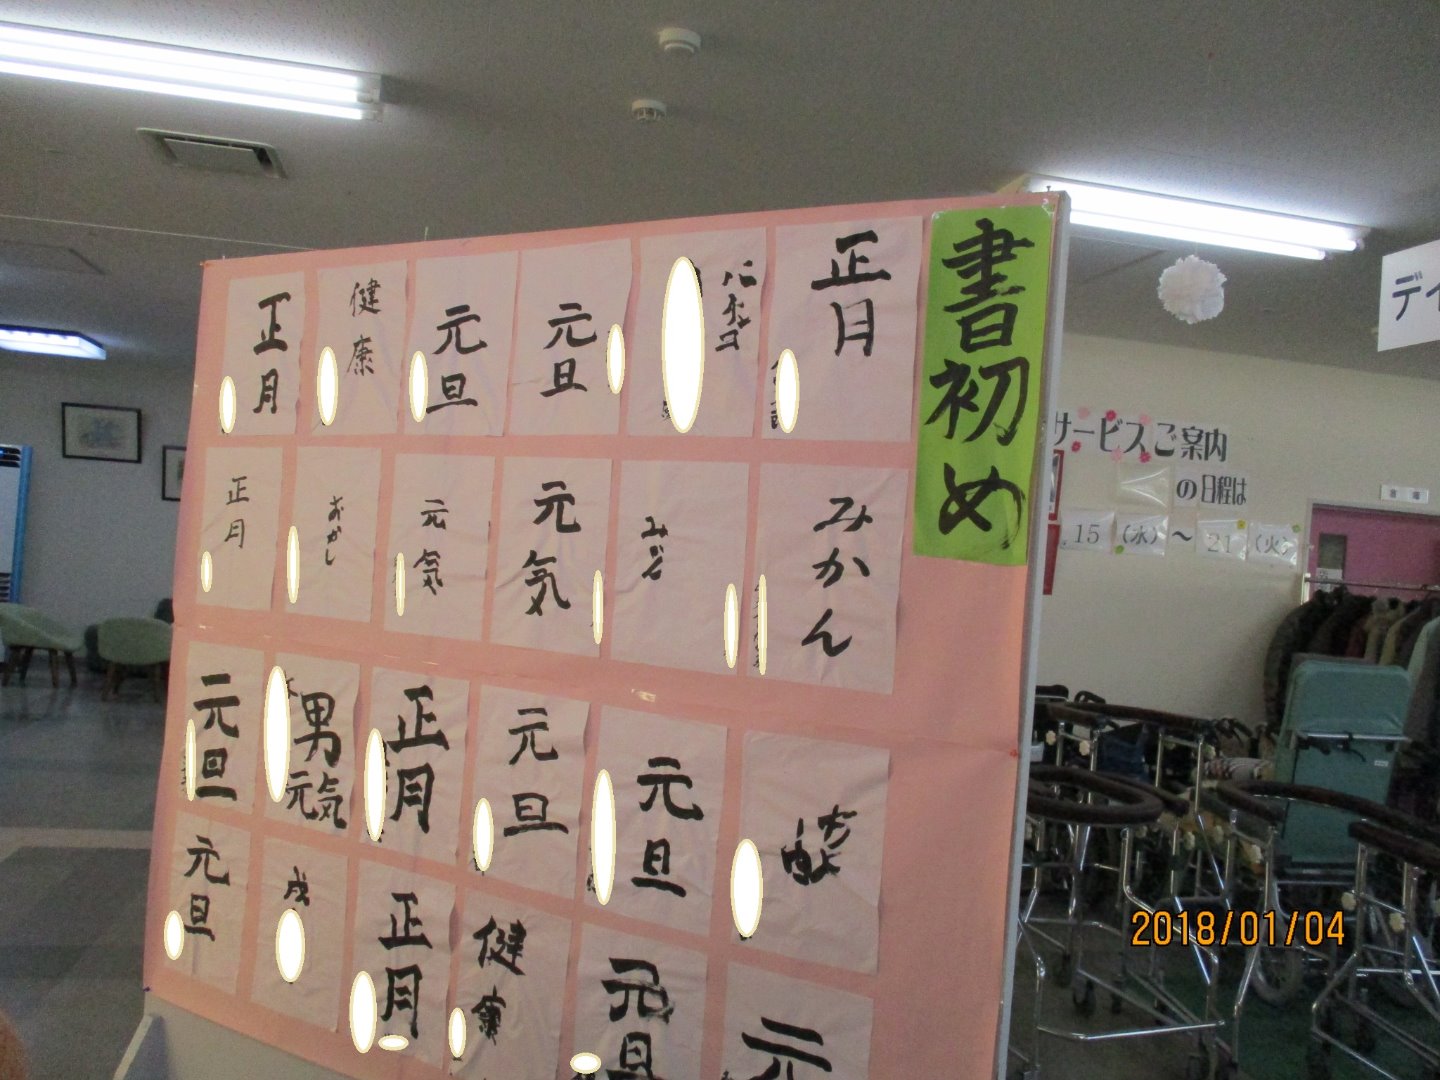 書初め
正月
パチンコ
元旦
元旦
健康
正月
みかん
みかん
元気
元気
おかし
正月
元旦
元旦
正月
男
元気
元旦
元
元旦
健康
正月
戌
元旦
サービスご案内
の日程は
15 (水) ~ 21 (火)
デイ
2018/01/04